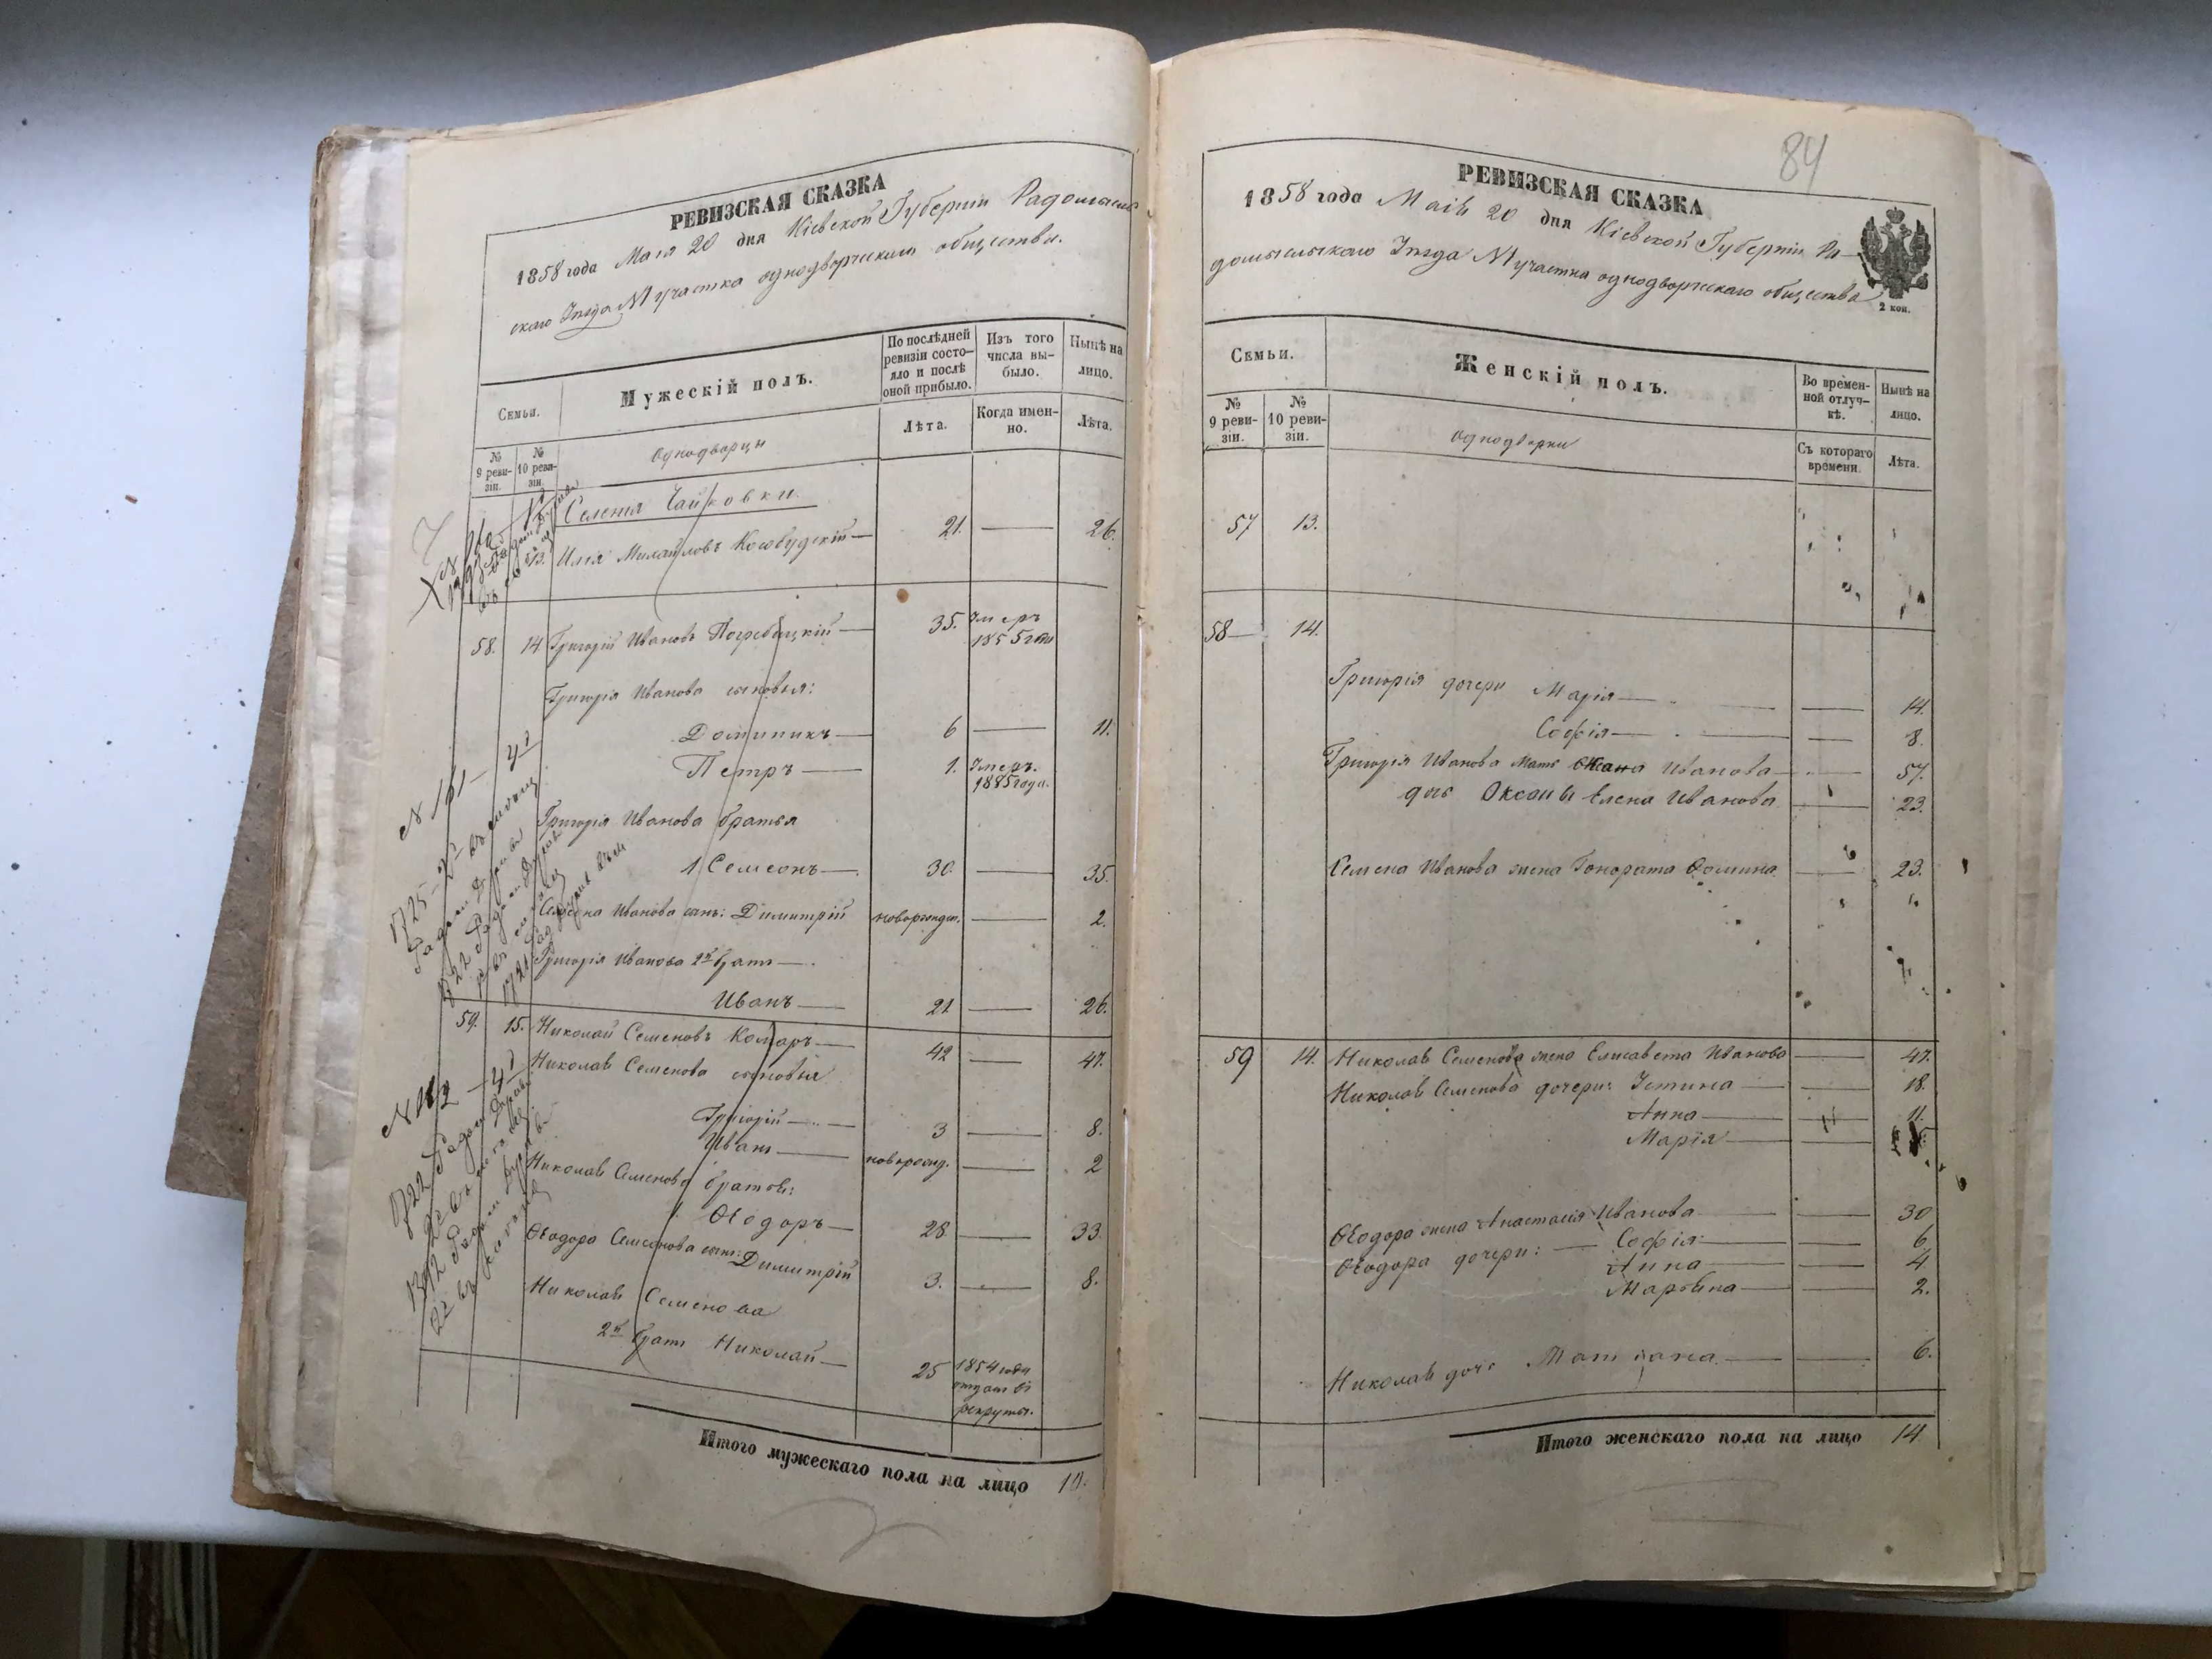 РЕВИЗСКАЯ СКАЗКА
1858 года Маія 20 дня Кіевской Губерніи Радомысль
скаго Уезда № 1 участка однодворческаго общества.
Семьи.
Мужескій полъ.
По послѣдней ревизіи состо-
яло и послѣ
оной прибыло.
Изъ того
числа вы-
было.
Нынѣ на
лицо.
№
9 реви-
зіи.
№
10 реви-
зіи.
однодворцы
Лѣта.
Когда имен-
но.
Лѣта.
Селенія Чайковки.
13. Илія Михайловъ Кособудскій — 21. — 26.
58. 14. Григорій Ивановъ Погребицкій — 35. Умеръ
1855 года
Григорія Иванова сыновья:
Доминикъ — 6 — 11.
Петръ — 1. Умеръ.
1885 года.
Григорія Иванова братья
1 Семеонъ — 30. — 35.
Семена Иванова сынъ: Димитрій новорожден. — 2.
Григорія Иванова 2й братъ —
Иванъ — 21 — 26.
59. 15. Николай Семеновъ Комаръ — 42 — 47.
Николая Семенова сыновья
Григорій — 3 — 8.
Иванъ — новорожд. — 2
Николая Семенова братья:
1 Ѳеодоръ — 28 — 33.
Ѳеодора Семенова сынъ:
Димитрій 3. — 8.
Николая Семенова
2й братъ Николай — 25 1854 года
отданъ въ
рекруты.
Итого мужескаго пола на лицо 10.
84
РЕВИЗСКАЯ СКАЗКА
1858 года Маія 20 дня Кіевской Губерніи Ра-
домысльскаго Уезда № 1 участка однодворческаго общества
2 коп.
Семьи.
Женскій полъ.
Во времен-
ной отлуч-
кѣ.
Нынѣ на
лицо.
№
9 реви-
зіи.
№
10 реви-
зіи.
однодворки
Съ котораго
времени.
Лѣта.
57 13.
58 — 14.
Григорія дочери Марія — — 14.
Софія — — 8.
Григорія Иванова мать Оксана Иванова — — 57.
дочь Оксаны Елена Иванова — 23.
Семена Иванова жена Гонората Фомина — 23.
59 14. Николая Семенова жена Елисавета Иванова — 47.
Николая Семенова дочери: Устина — — 18.
Анна — — 11.
Марія — —
Ѳеодора жена Анастасія Иванова — — 30
Ѳеодора дочери: — Софія — — 6
Анна — — 4
Марьяна — — 2.
Николая дочь Татіана — — 6.
Итого женскаго пола на лицо 14.